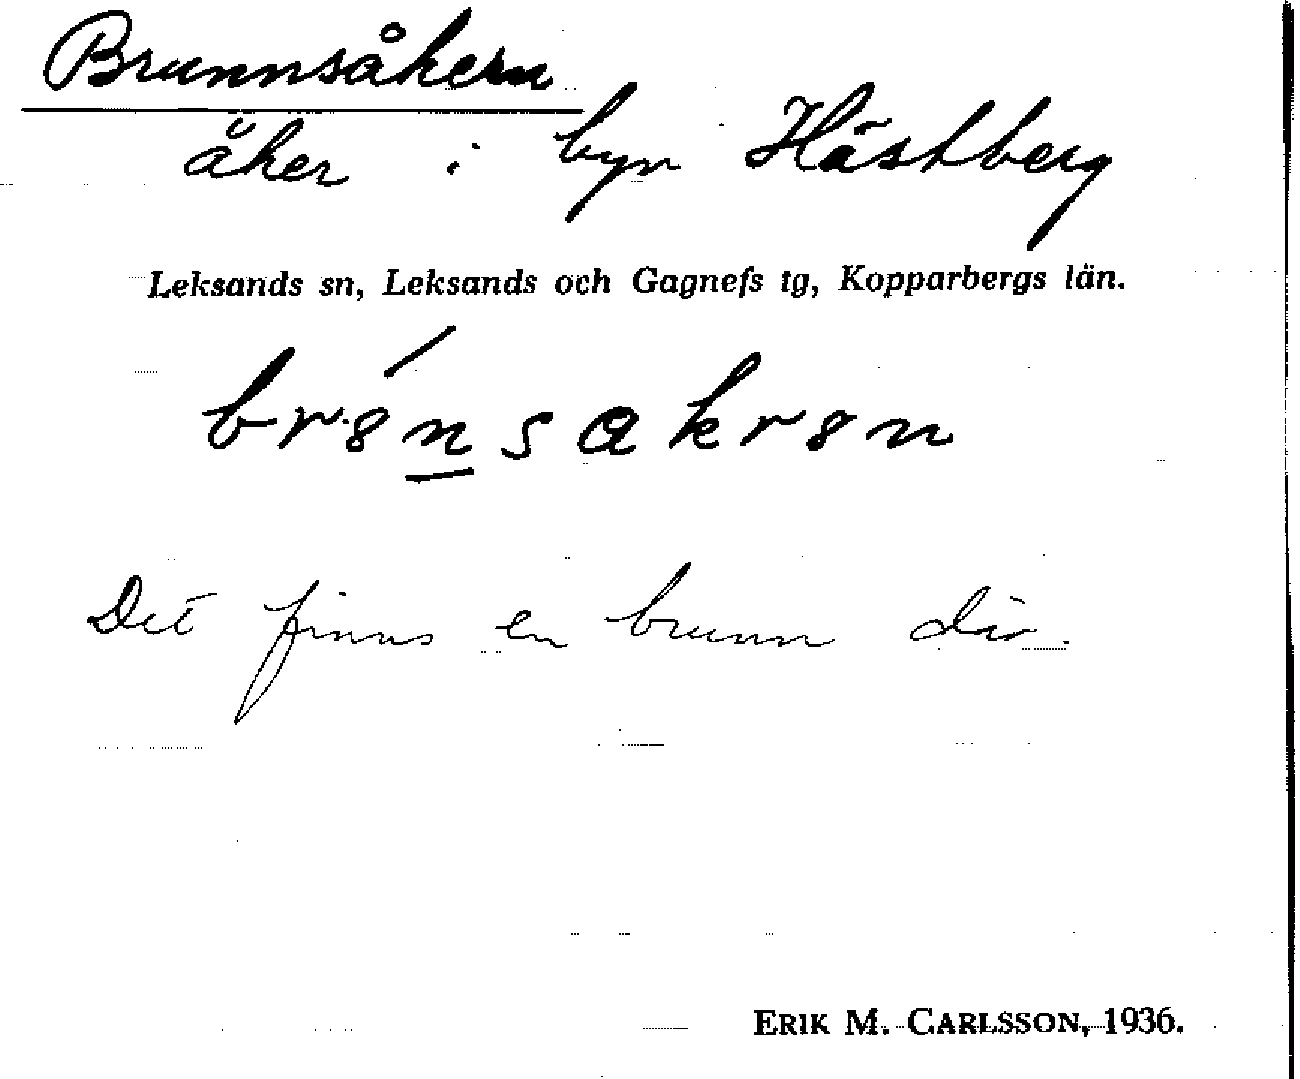 Brunnsåkern
åker i byn Hästberg
Leksands sn, Leksands och Gagnefs tg, Kopparbergs län.
Det finns en brunn där.
ERIK M. CARLSSON, 1936.